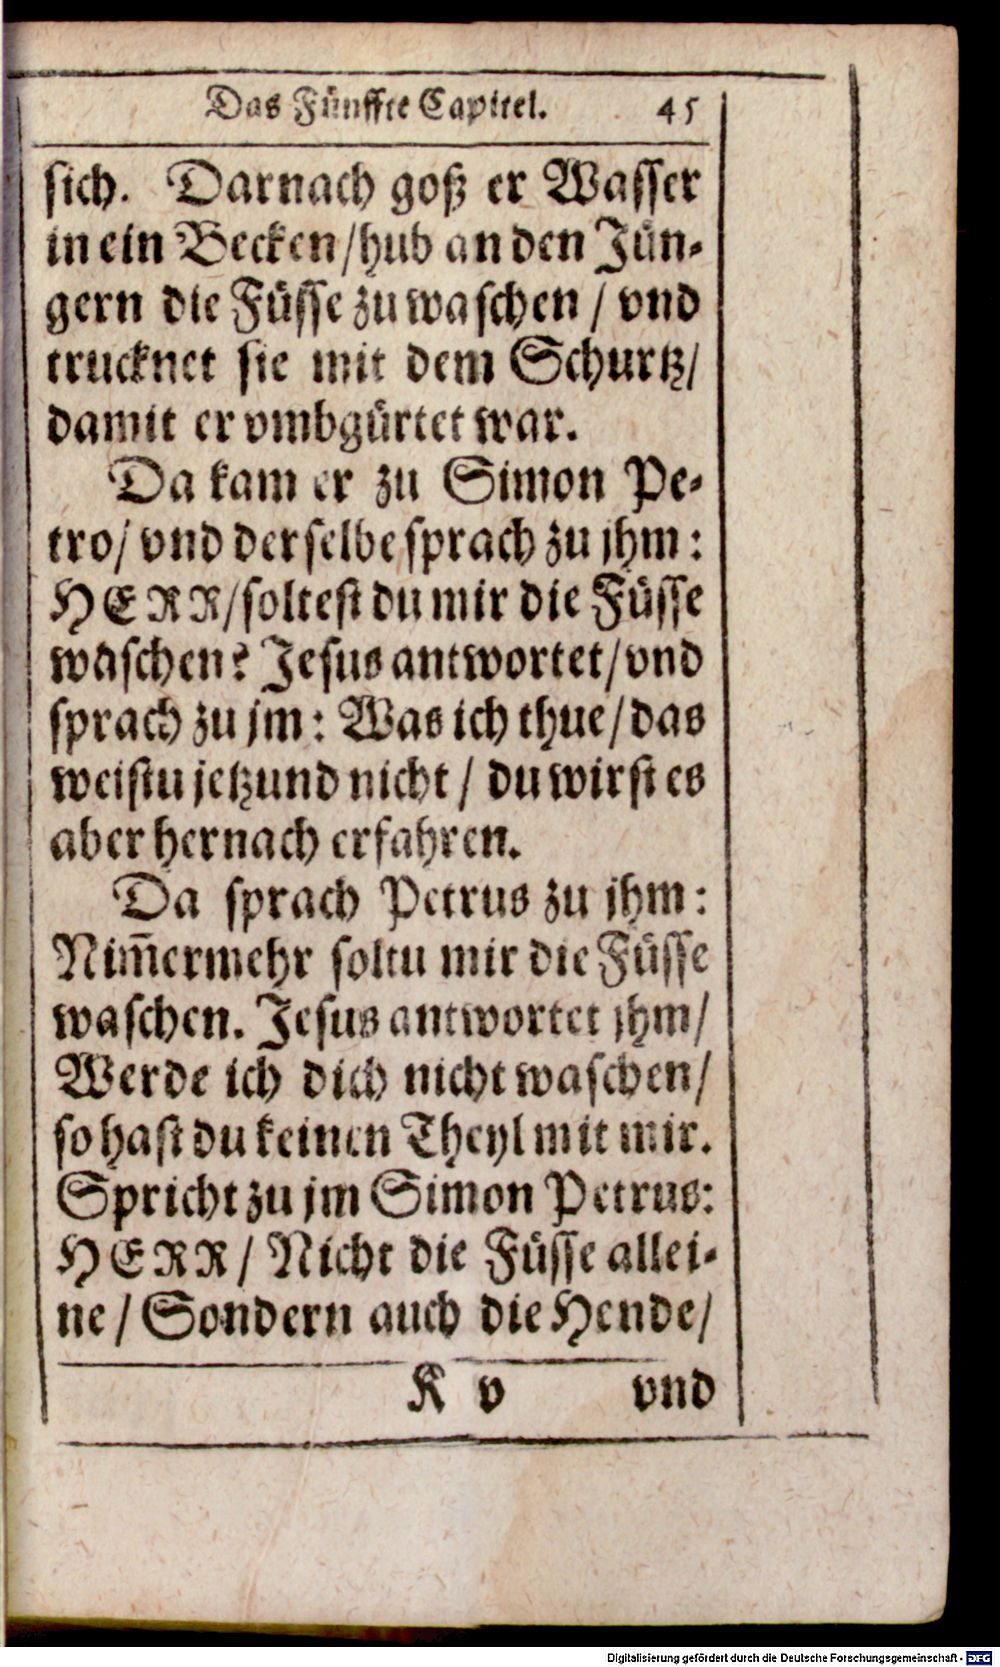 Das Fünffte Capitel. 45
sich. Darnach goß er Wasser
in ein Becken/hub an den Jün-
gern die Füsse zu waschen / vnd
trucknet sie mit dem Schurtz/
damit er vmbgürtet war.
Da kam er zu Simon Pe-
tro/ vnd derselbe sprach zu jhm:
HERR/soltest du mir die Füsse
waschen? Jesus antwortet/vnd
sprach zu jm: Was ich thue/das
weistu jetzund nicht / du wirst es
aber hernach erfahren.
Da sprach Petrus zu jhm:
Nim̃ermehr soltu mir die Füsse
waschen. Jesus antwortet jhm/
Werde ich dich nicht waschen/
so hast du keinen Theyl mit mir.
Spricht zu jm Simon Petrus:
HERR / Nicht die Füsse allei-
ne / Sondern auch die Hende/
K v vnd
Digitalisierung gefördert durch die Deutsche Forschungsgemeinschaft - DFG